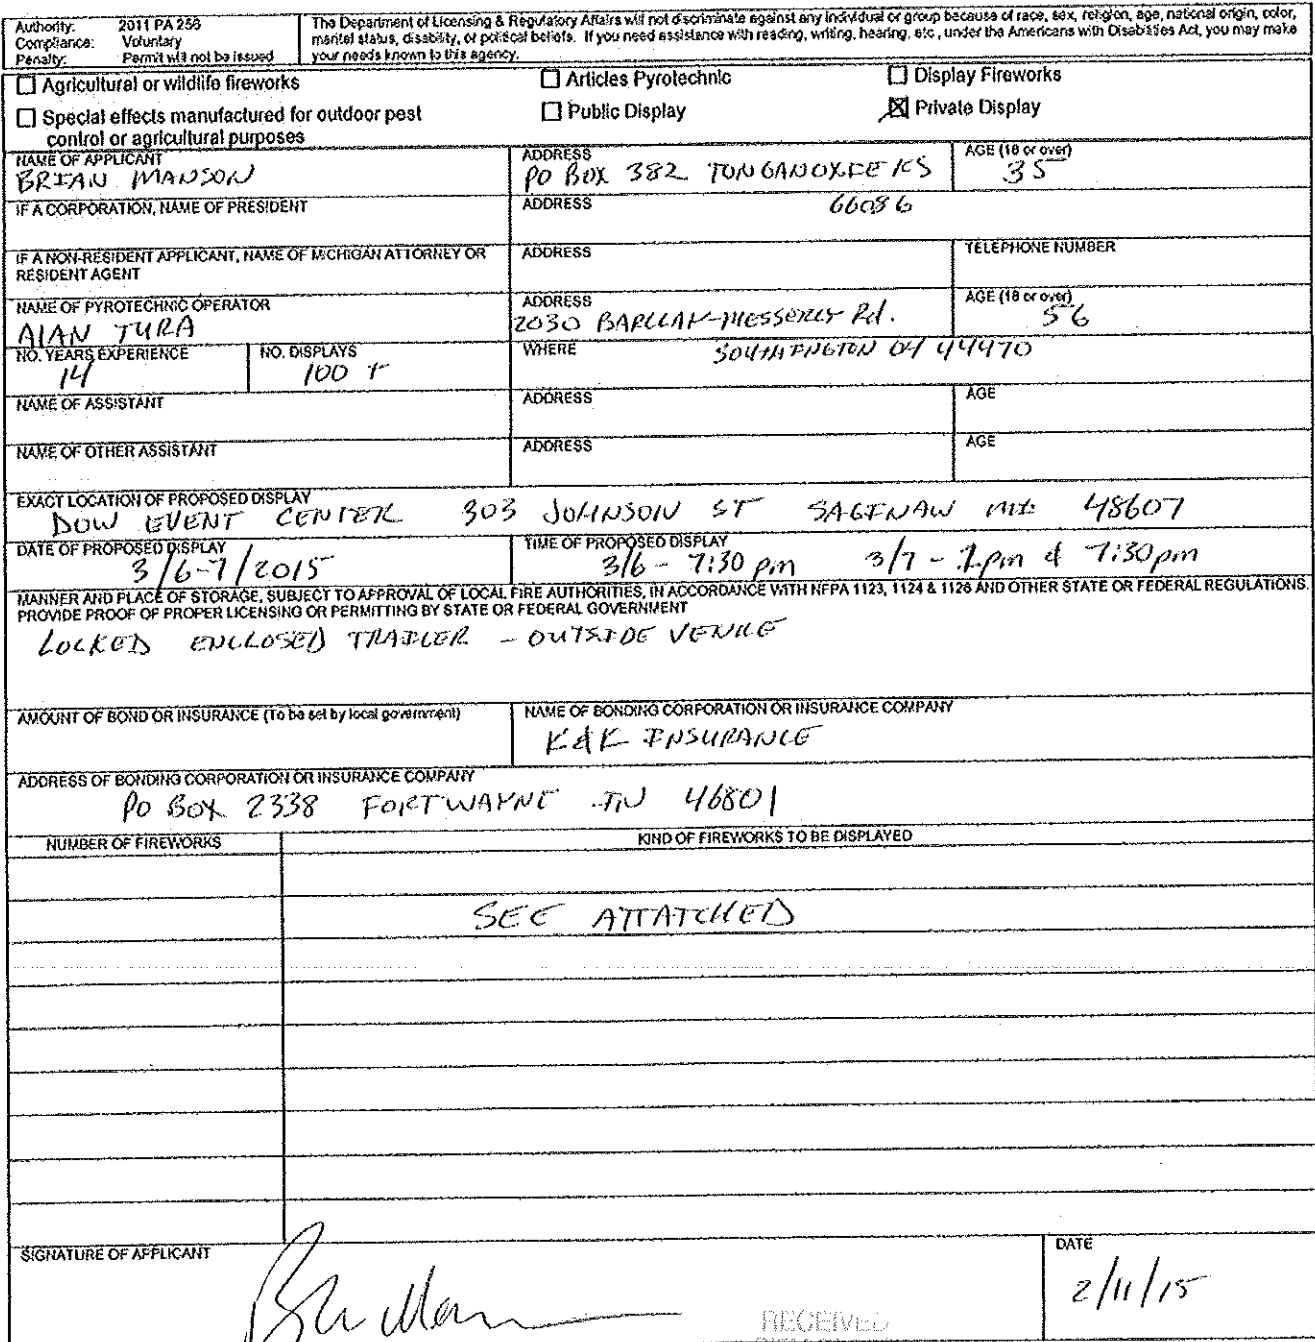 Authority: 2011 PA 256
Compliance: Voluntary
Penalty: Permit will not be issued
The Department of Licensing & Regulatory Affairs will not discriminate against any individual or group because of race, sex, religion, age, national origin, color,
marital status, disability, or political beliefs. If you need assistance with reading, writing, hearing, etc., under the Americans with Disabilities Act, you may make
your needs known to this agency.
☐ Agricultural or wildlife fireworks ☐ Articles Pyrotechnic ☐ Display Fireworks
☐ Special effects manufactured for outdoor pest ☐ Public Display ☒ Private Display
control or agricultural purposes
NAME OF APPLICANT ADDRESS AGE (18 or over)
BRIAN MANSON PO BOX 382 TONGANOXIE KS 35
IF A CORPORATION, NAME OF PRESIDENT ADDRESS 66086
IF A NON-RESIDENT APPLICANT, NAME OF MICHIGAN ATTORNEY OR ADDRESS TELEPHONE NUMBER
RESIDENT AGENT
NAME OF PYROTECHNIC OPERATOR ADDRESS AGE (18 or over)
AlAN TURA 2030 BARCLAY-MESSERLY Rd. 56
NO. YEARS EXPERIENCE NO. DISPLAYS WHERE SOUTHINGTON OH 44470
14 100 +
NAME OF ASSISTANT ADDRESS AGE
NAME OF OTHER ASSISTANT ADDRESS AGE
EXACT LOCATION OF PROPOSED DISPLAY
DOW EVENT CENTER 303 JOHNSON ST SAGINAW MI 48607
DATE OF PROPOSED DISPLAY TIME OF PROPOSED DISPLAY
3/6-7/2015 3/6 - 7:30 pm 3/7 - 1pm & 7:30pm
MANNER AND PLACE OF STORAGE, SUBJECT TO APPROVAL OF LOCAL FIRE AUTHORITIES, IN ACCORDANCE WITH NFPA 1123, 1124 & 1126 AND OTHER STATE OR FEDERAL REGULATIONS.
PROVIDE PROOF OF PROPER LICENSING OR PERMITTING BY STATE OR FEDERAL GOVERNMENT
LOCKED ENCLOSED TRAILER - OUTSIDE VENUE
AMOUNT OF BOND OR INSURANCE (To be set by local government) NAME OF BONDING CORPORATION OR INSURANCE COMPANY
K&K INSURANCE
ADDRESS OF BONDING CORPORATION OR INSURANCE COMPANY
PO BOX 2338 FORT WAYNE IN 46801
NUMBER OF FIREWORKS KIND OF FIREWORKS TO BE DISPLAYED
SEE ATTATCHED
SIGNATURE OF APPLICANT DATE
2/11/15
RECEIVED